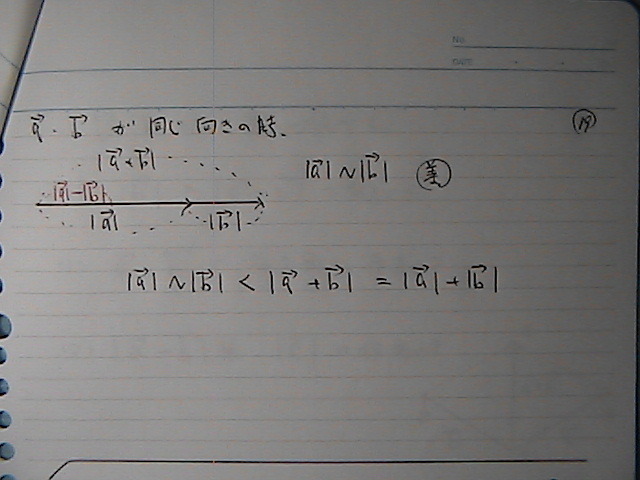 NO.
DATE
a⃗・b⃗ が 同じ 向きの時、
|a⃗+b⃗|
|a⃗|~|b⃗| 差
|a⃗|-|b⃗|
|a⃗| |b⃗|
|a⃗|~|b⃗| < |a⃗+b⃗| = |a⃗|+|b⃗|